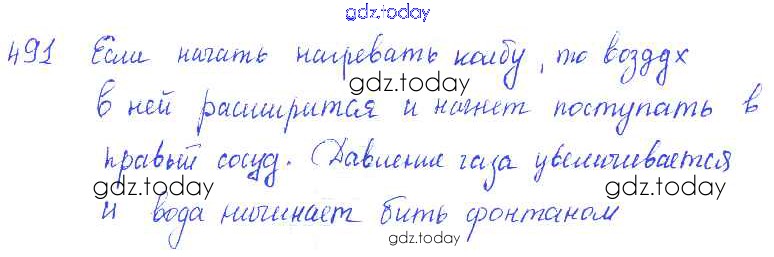 gdz.today
491 Если начать нагревать колбу, то воздух
gdz.today
в ней расширится и начнет поступать в
правый сосуд. Давление газа увеличивается
gdz.today gdz.today
и вода начинает бить фонтаном
gdz.today